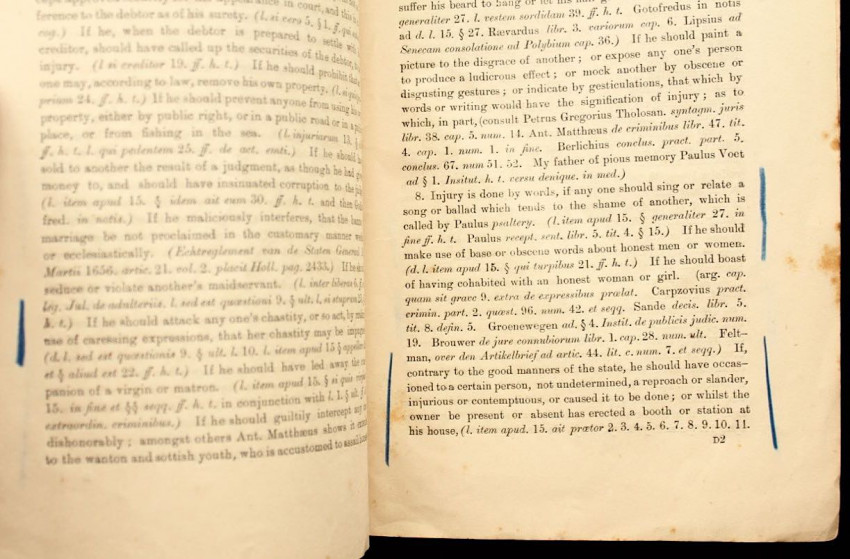 ference to the debtor as of his surety. (l. si vero 5. § 1. ff. qui
cog.) If he, when the debtor is prepared to settle with
creditor, should have called up the securities of the debtor, to
injury. (l si creditor 19. ff. h. t.) If he should prohibit that
one may, according to law, remove his own property. (l.
prium 24. ff. h. t.) If he should prevent anyone from using his
property, either by public right, or in a public road or in a
place, or from fishing in the sea. (l. injuriarum 13. §
ff. h. t. l. qui pedentem 25. ff. de act. emti.) If he should
sold to another the result of a judgment, as though he had
money to, and should have insinuated corruption to the
(l. item apud 15. § idem ait eum 30. ff. h. t. and then
fred. in notis.) If he maliciously interferes, that the
marriage be not proclaimed in the customary manner
or ecclesiastically. (Echtreglement van de Staten General
Martii 1656. artic. 21. vol. 2. placit Holl. pag. 2433.) If he
seduce or violate another's maidservant. (l. inter liberas 6.
leg. Jul. de adulteriis. l. sed est quæstioni 9. § ult. l. si stuprum
h. t.) If he should attack any one's chastity, or so act, by
use of caressing expressions, that her chastity may be
(d. l. sed est quæstionis 9. § ult. l. 10. l. item apud 15 §
et § aliud est 22. ff. h. t.) If he should have led away the
panion of a virgin or matron. (l. item apud. 15. § si quis
15. in fine et §§ seqq. ff. h. t. in conjunction with l. 1. § ult.
extraordin. criminibus.) If he should guiltily intercept
dishonorably; amongst others Ant. Matthæus shows it
to the wanton and sottish youth, who is accustomed to
suffer his beard to hang or let his
generaliter 27. l. vestem sordidam 39. ff. h. t. Gotofredus in notis
ad d. l. 15. § 27. Rævardus libr. 3. variorum cap. 6. Lipsius ad
Senecam consolatione ad Polybium cap. 36.) If he should paint a
picture to the disgrace of another; or expose any one's person
to produce a ludicrous effect; or mock another by obscene or
disgusting gestures; or indicate by gesticulations, that which by
words or writing would have the signification of injury; as to
which, in part, (consult Petrus Gregorius Tholosan. syntagm. juris
libr. 38. cap. 5. num. 14. Ant. Matthæus de criminibus libr. 47. tit.
4. cap. 1. num. 1. in fine. Berlichius conclus. pract. part. 5.
conclus. 67. num 51. 52. My father of pious memory Paulus Voet
ad § 1. Insitut. h. t. versu denique. in med.)
8. Injury is done by words, if any one should sing or relate a
song or ballad which tends to the shame of another, which is
called by Paulus psaltery. (l. item apud 15. § generaliter 27. in
fine ff. h. t. Paulus recept. sent. libr. 5. tit. 4. § 15.) If he should
make use of base or obscene words about honest men or women.
(d. l. item apud 15. § qui turpibus 21. ff. h. t.) If he should boast
of having cohabited with an honest woman or girl. (arg. cap.
quam sit grave 9. extra de expressibus prælat. Carpzovius pract.
crimin. part. 2. quæst. 96. num. 42. et seqq. Sande decis. libr. 5.
tit. 8. defin. 5. Groenewegen ad. § 4. Instit. de publicis judic. num.
19. Brouwer de jure connubiorum libr. 1. cap. 28. num. ult. Felt-
man, over den Artikelbrief ad artic. 44. lit. c. num. 7. et seqq.) If,
contrary to the good manners of the state, he should have occas-
ioned to a certain person, not undetermined, a reproach or slander,
injurious or contemptuous, or caused it to be done; or whilst the
owner be present or absent has erected a booth or station at
his house, (l. item apud. 15. ait prætor 2. 3. 4. 5. 6. 7. 8. 9. 10. 11.
D2